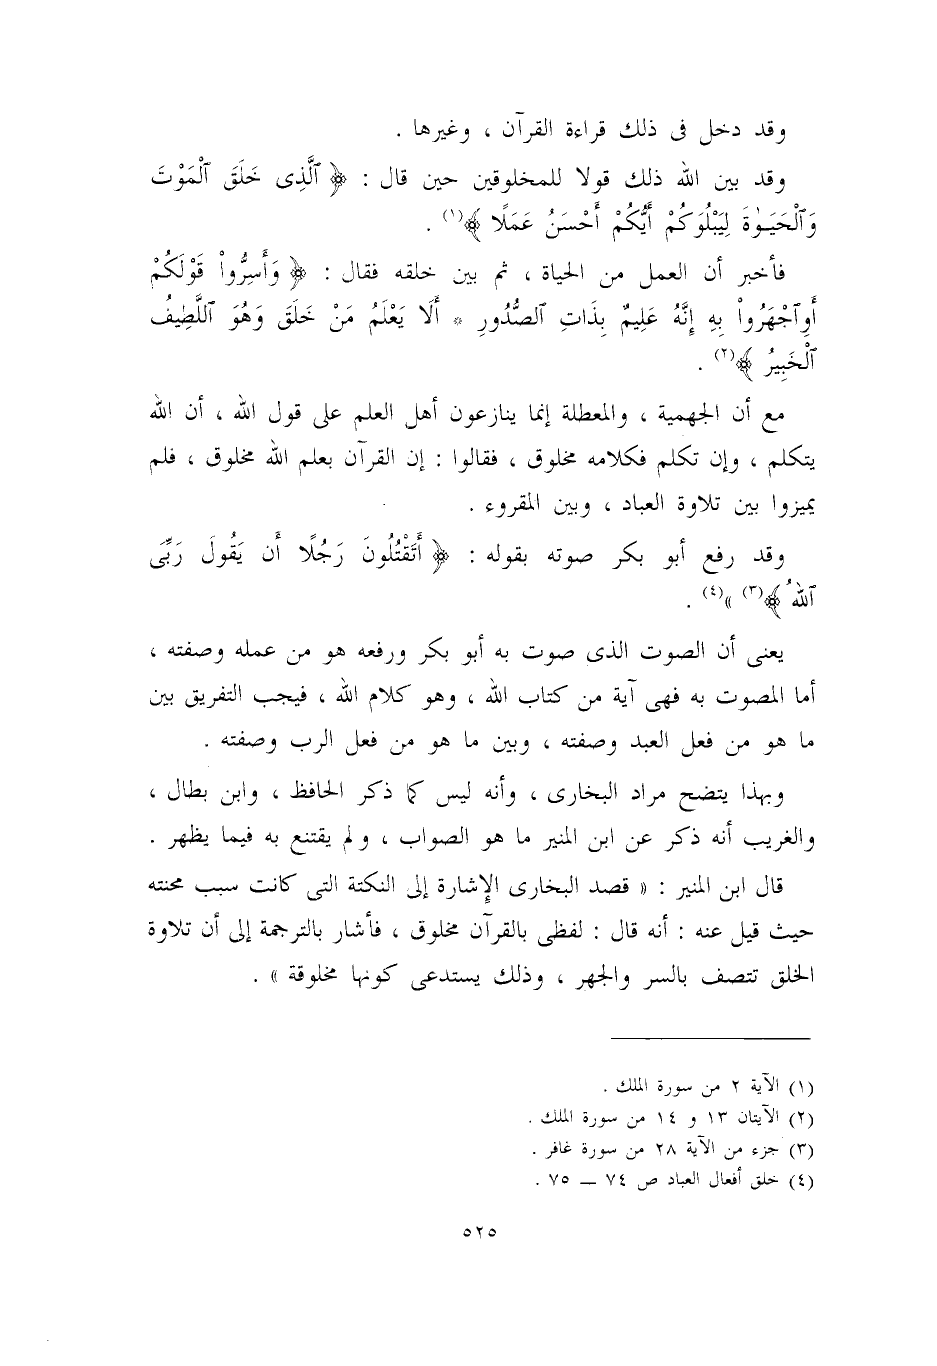 وقد دخل فى ذلك قراءة القرآن ، وغيرها .
وقد بين الله ذلك قولا للمخلوقين حين قال : ﴿ ٱلَّذِى خَلَقَ ٱلْمَوْتَ
وَٱلْحَيَوٰةَ لِيَبْلُوَكُمْ أَيُّكُمْ أَحْسَنُ عَمَلًا ﴾(١) .
فأخبر أن العمل من الحياة ، ثم بين خلقه فقال : ﴿ وَأَسِرُّواْ قَوْلَكُمْ
أَوِٱجْهَرُواْ بِهِ إِنَّهُ عَلِيمٌ بِذَاتِ ٱلصُّدُورِ * أَلَا يَعْلَمُ مَنْ خَلَقَ وَهُوَ ٱللَّطِيفُ
ٱلْخَبِيرُ ﴾(٢) .
مع أن الجهمية ، والمعطلة إنما ينازعون أهل العلم على قول الله ، أن الله
يتكلم ، وإن تكلم فكلامه مخلوق ، فقالوا : إن القرآن بعلم الله مخلوق ، فلم
يميزوا بين تلاوة العباد ، وبين المقروء .
وقد رفع أبو بكر صوته بقوله : ﴿ أَتَقْتُلُونَ رَجُلًا أَن يَقُولَ رَبِّىَ
ٱللهُ ﴾(٣) »(٤) .
يعنى أن الصوت الذى صوت به أبو بكر ورفعه هو من عمله وصفته ،
أما المصوت به فهى آية من كتاب الله ، وهو كلام الله ، فيجب التفريق بين
ما هو من فعل العبد وصفته ، وبين ما هو من فعل الرب وصفته .
وبهذا يتضح مراد البخارى ، وأنه ليس كما ذكر الحافظ ، وابن بطال ،
والغريب أنه ذكر عن ابن المنير ما هو الصواب ، ولم يقتنع به فيما يظهر .
قال ابن المنير : « قصد البخارى الإشارة إلى النكتة التى كانت سبب محنته
حيث قيل عنه : أنه قال : لفظى بالقرآن مخلوق ، فأشار بالترجمة إلى أن تلاوة
الخلق تتصف بالسر والجهر ، وذلك يستدعى كونها مخلوقة » .
(١) الآية ٢ من سورة الملك .
(٢) الآيتان ١٣ و ١٤ من سورة الملك .
(٣) جزء من الآية ٢٨ من سورة غافر .
(٤) خلق أفعال العباد ص ٧٤ ــ ٧٥ .
٥٢٥